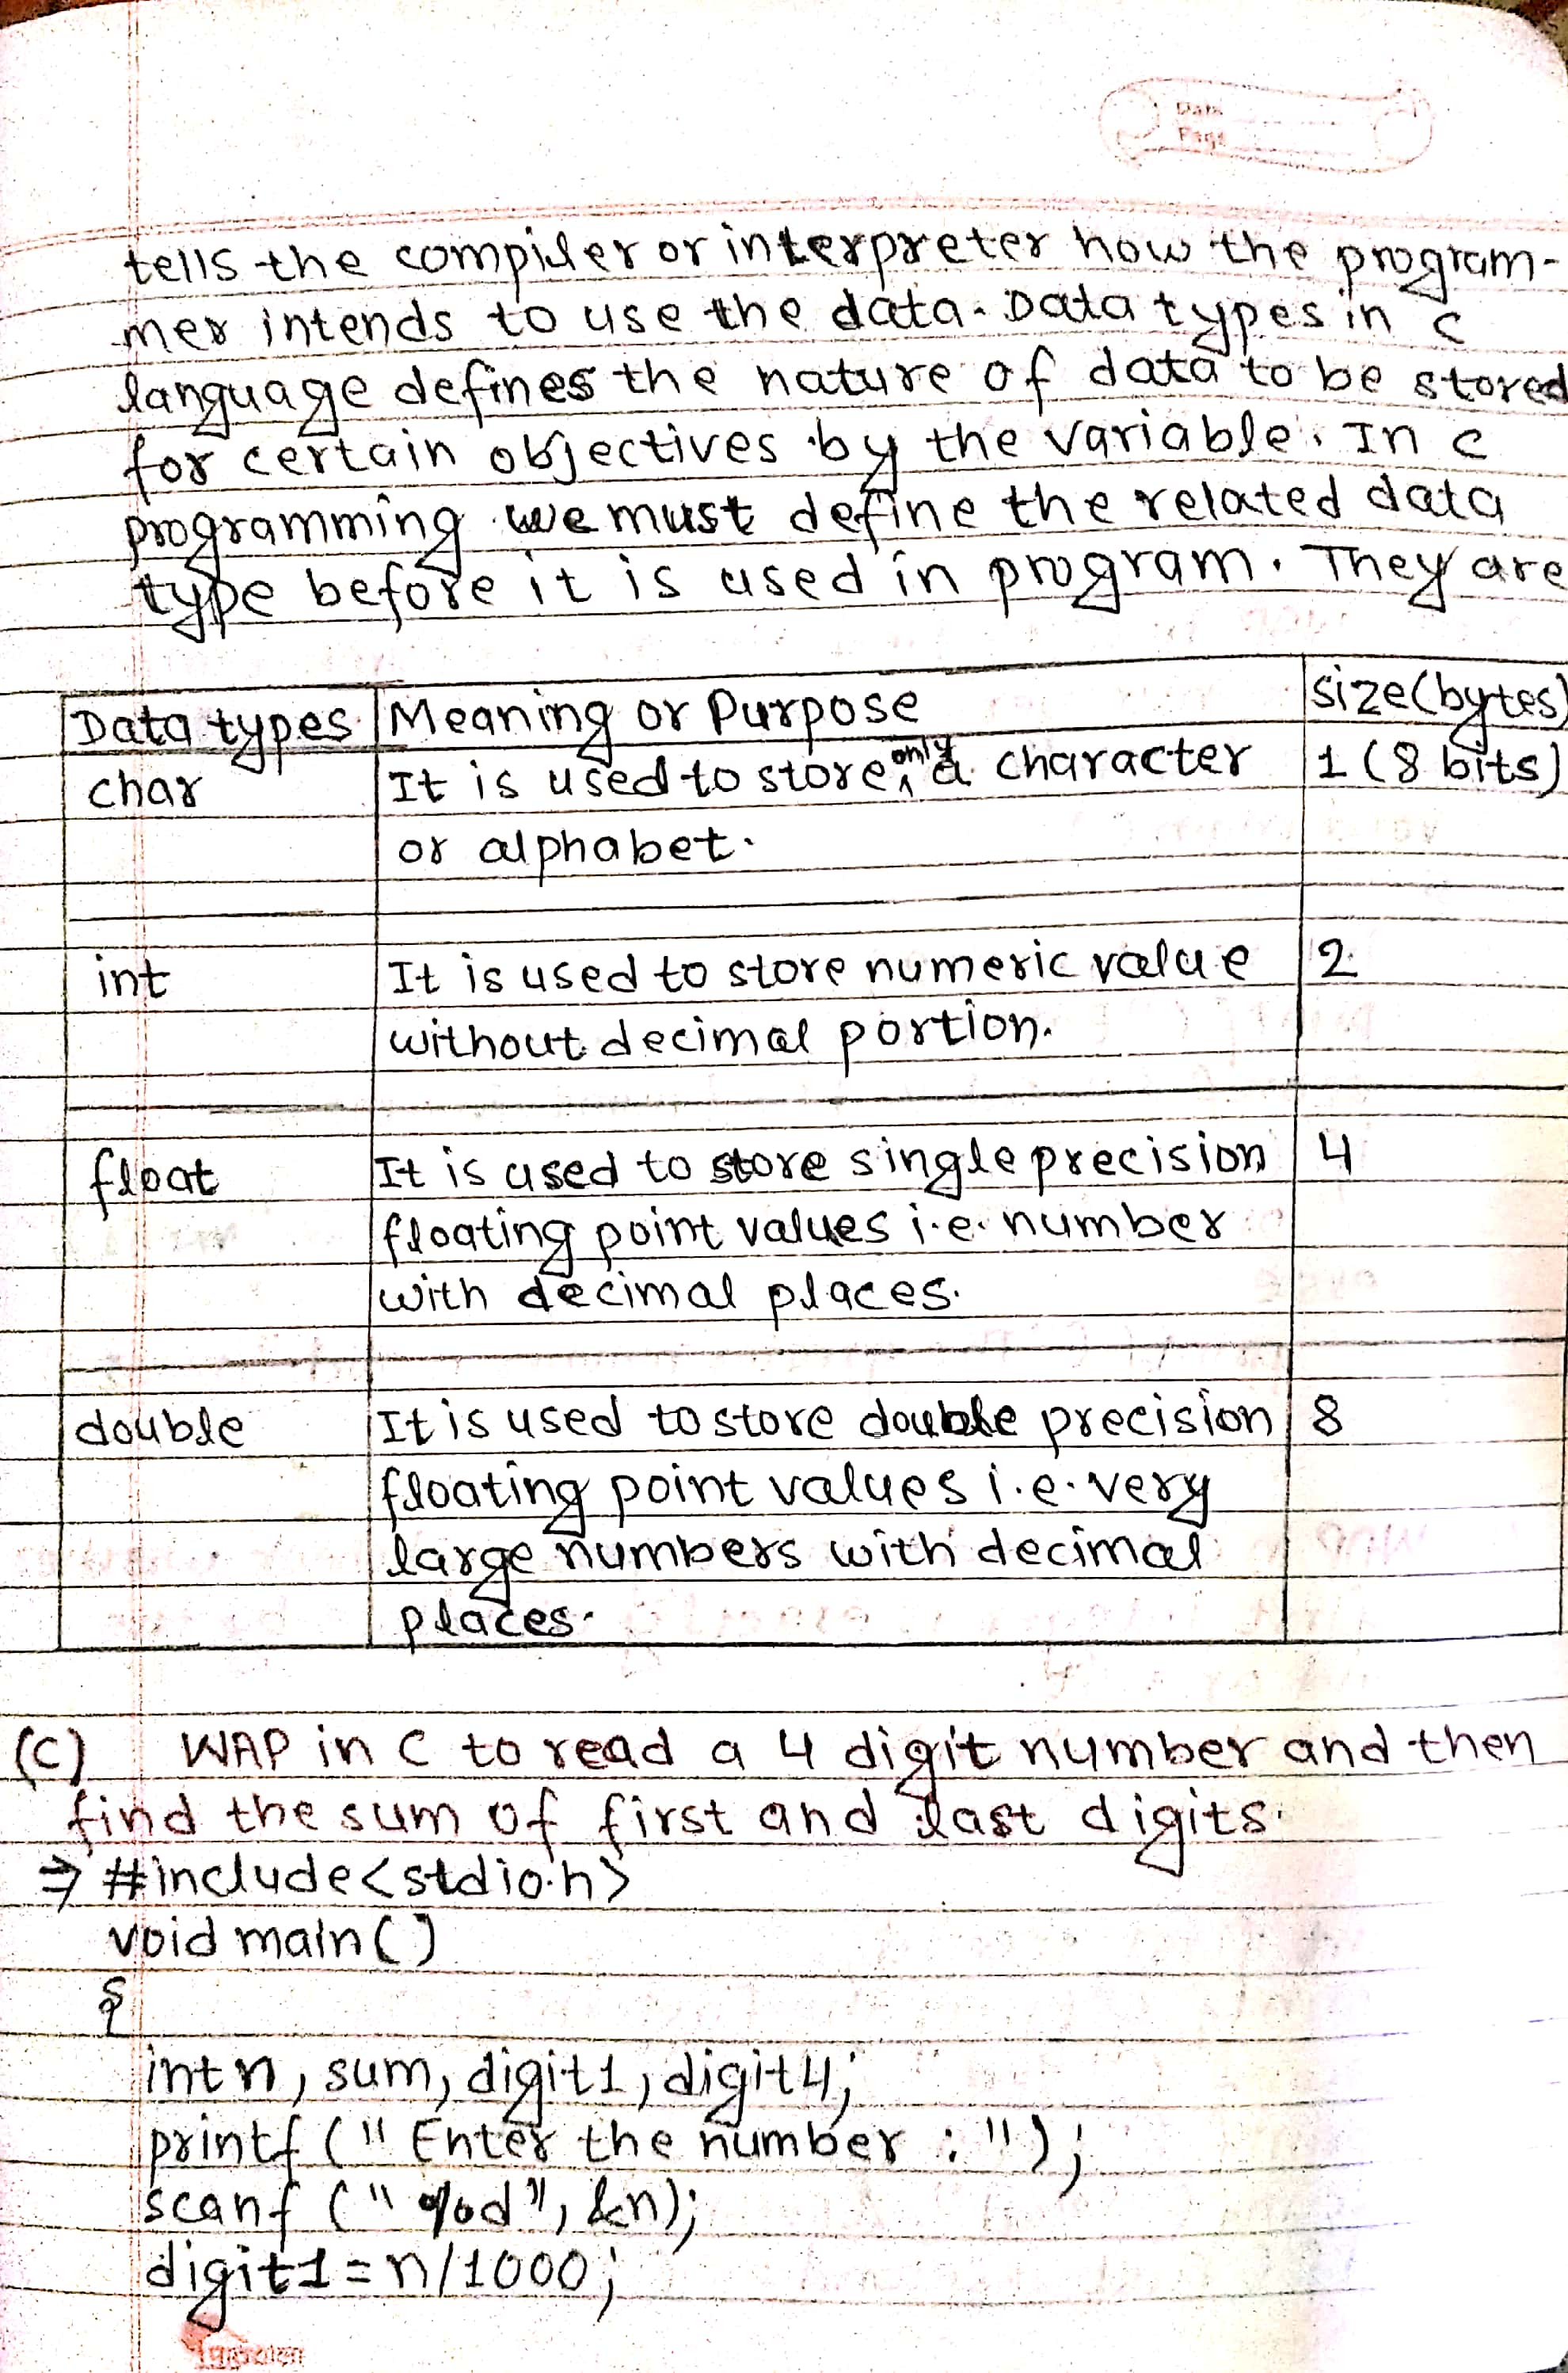 Date
Page
tells the compiler or interpreter how the program-
mer intends to use the data. Data types in c
language defines the nature of data to be stored
for certain objectives by the variable. In c
programming we must define the related data
type before it is used in program. They are
Data types Meaning or Purpose size(bytes)
char It is used to store only a character 1 (8 bits)
or alphabet.
int It is used to store numeric value 2
without decimal portion.
float It is used to store single precision 4
floating point values i.e. number
with decimal places.
double It is used to store double precision 8
floating point values i.e. very
large numbers with decimal
places.
(C) WAP in C to read a 4 digit number and then
find the sum of first and last digits.
⇒ #include<stdio.h>
void main()
{
int n, sum, digit1, digit4;
printf (" Enter the number : ");
scanf (" %d", &n);
digit1 = n/1000;